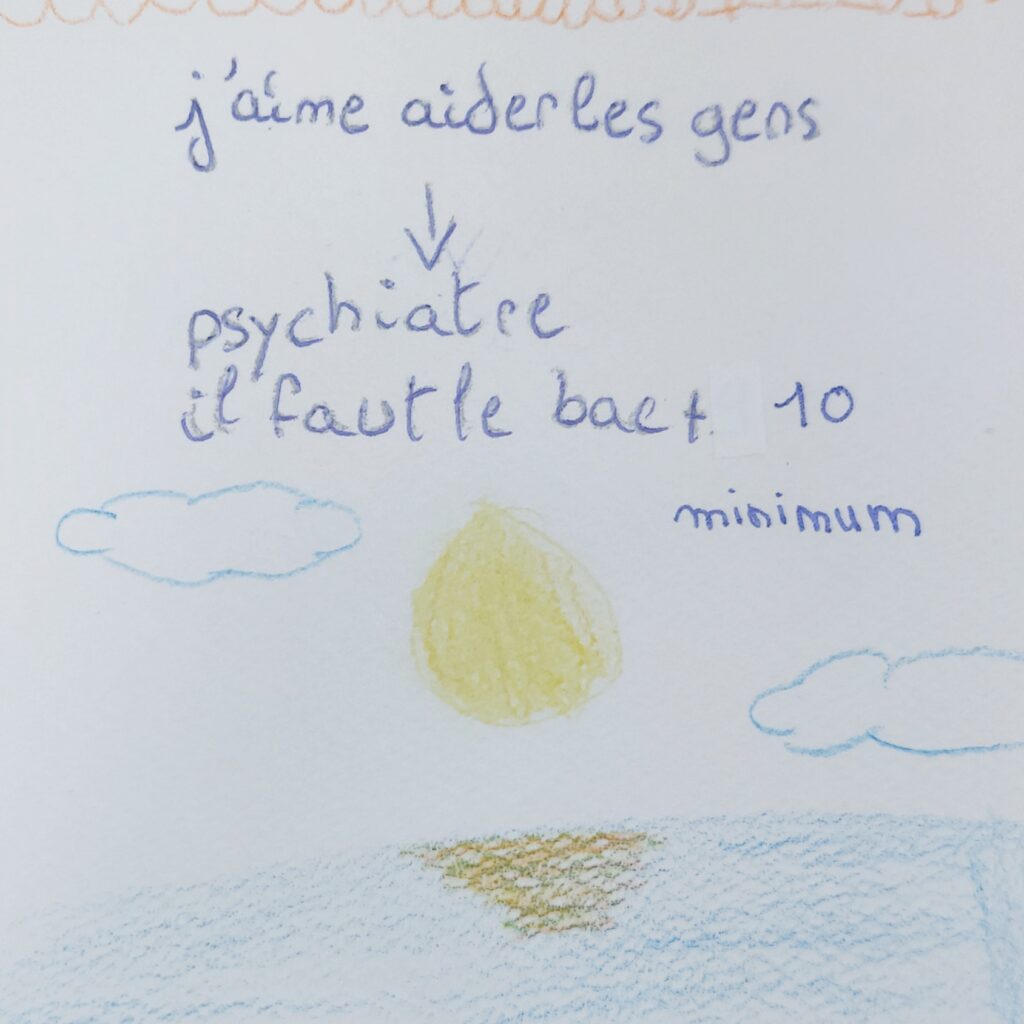 j'aime aider les gens
psychiatre
il faut le bac + 10
minimum